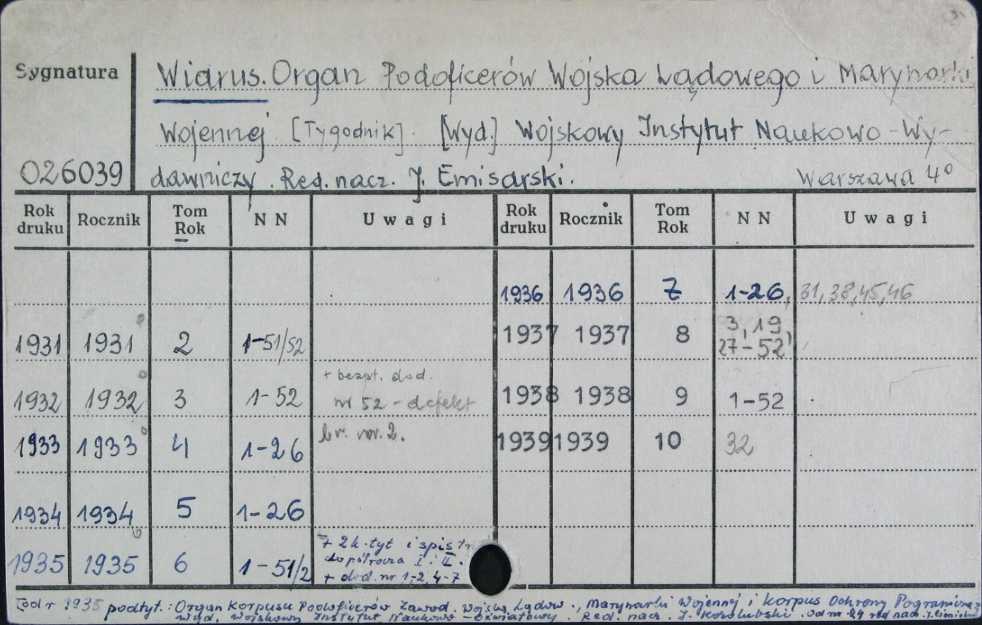 Sygnatura
Wiarus. Organ Podoficerów Wojska Lądowego i Marynarki
Wojennej [Tygodnik]. [Wyd.] Wojskowy Instytut Naukowo-Wy-
026039 dawniczy. Red. nacz. J. Emisarski. Warszawa 4°
Rok druku Rocznik Tom Rok NN Uwagi Rok druku Rocznik Tom Rok NN Uwagi
1936 1936 7 1-26, 31, 38, 45, 46
1931 1931 2 1-51/52 1937 1937 8 3, 19, 27-52
1932 1932 3 1-52 + bezpł. dod. nr 52 - defekt 1938 1938 9 1-52
1933 1933 4 1-26 br. nr. 2. 1939 1939 10 32
1934 1934 5 1-26
1935 1935 6 1-51/2 + 2 k. tyt i spis
do półrocza I i II.
+ dod. nr 1-2, 4-7
od r 1935 podtyt.: Organ Korpusu Podoficerów Zawod. Wojsk Lądow., Marynarki Wojennej i Korpus Ochrony Pogranicza
Wyd. Wojskowy Instytut Naukowo-Oświatowy. Red. nacz. J.